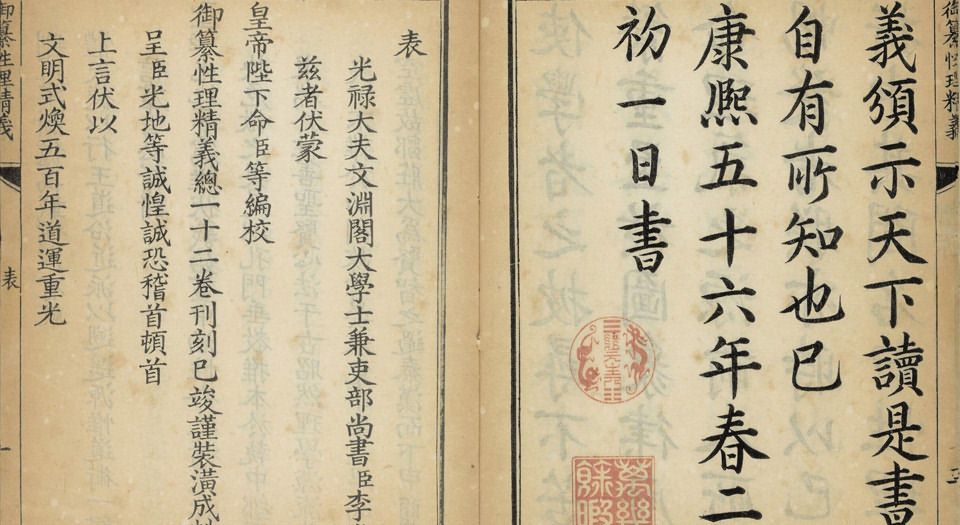 御纂性理精義
義頒示天下讀是書
自有所知也已
康熙五十六年春二
初一日書
體元主人
萬幾餘暇
表
光禄大夫文淵閣大學士兼吏部尚書臣李
茲者伏蒙
皇帝陛下命臣等編校
御纂性理精義總一十二卷刊刻已竣謹裝潢成
呈臣光地等誠惶誠恐稽首頓首
上言伏以
文明式煥五百年道運重光
御纂性理精義
表
一